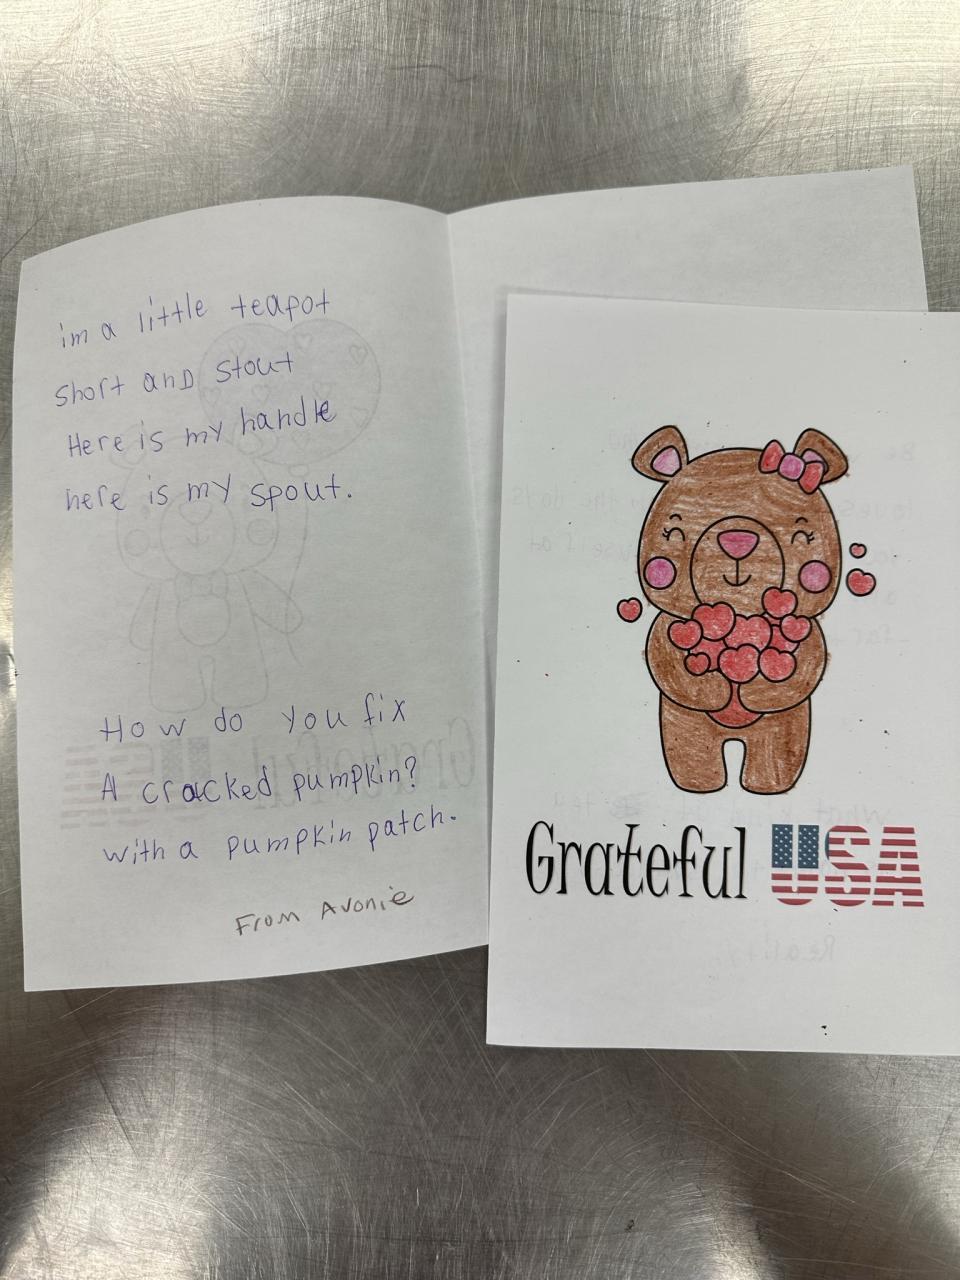 im a little teapot
short and stout
Here is my handle
here is my spout.
How do you fix
A cracked pumpkin?
with a pumpkin patch.
From Avonie
Grateful USA